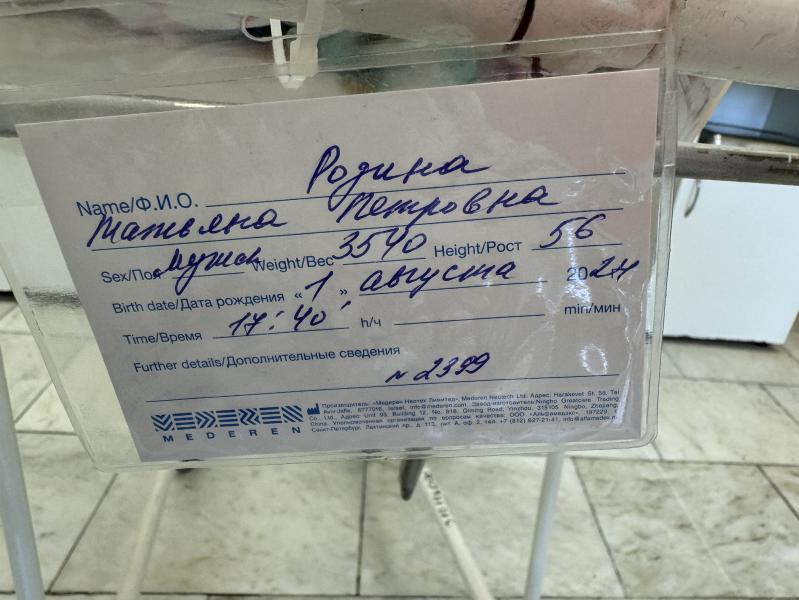 Name/Ф.И.О. Родина
Татьяна Петровна
Sex/Пол Мужск Weight/Вес 3540 Height/Рост 56
Birth date/Дата рождения « 1 » августа 2024
Time/Время 17:40 h/ч min/мин
Further details/Дополнительные сведения
№2399
MEDEREN
Производитель: «Медерен Неотех Лимитед», Mederen Neotech Ltd. Адрес: Harakevet St. 58, Tel
Aviv-Jaffa, 6777016, Israel, info@mederen.com. Завод-изготовитель: Ningbo Greatcare Trading
Co., Ltd. Адрес: Unit 93, Building 12, No. 818, Qiming Road, Yinzhou, 315105 Ningbo, Zhejiang,
China. Уполномоченная организация по вопросам качества: ООО «Альфамедикс», 197229, г.
Санкт-Петербург, Лахтинский пр., д. 113, лит. А, оф. 2, тел. +7 (812) 627-21-41, info@alfamedex.ru